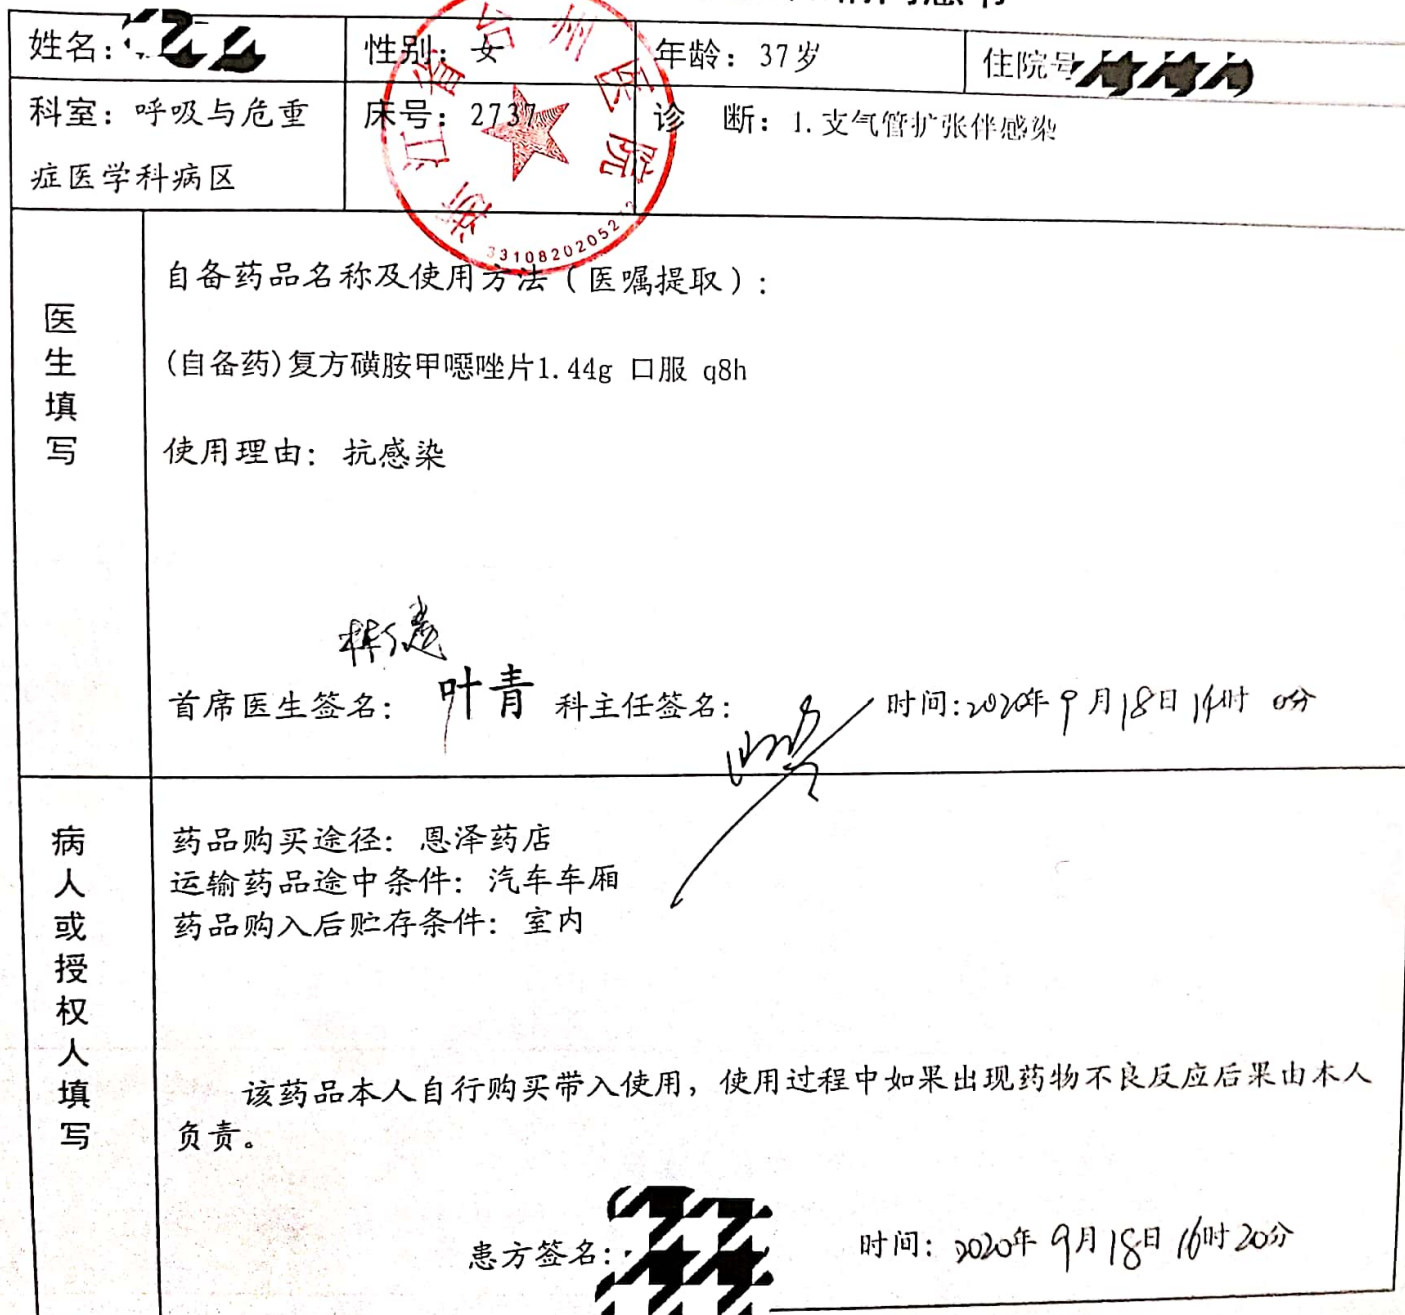 姓名：
性别：女
年龄：37岁
住院号
科室：呼吸与危重
症医学科病区
床号：2737
诊 断：1.支气管扩张伴感染
浙江省台州医院
医生填写
自备药品名称及使用方法（医嘱提取）：
(自备药)复方磺胺甲噁唑片1.44g 口服 q8h
使用理由：抗感染
首席医生签名： 叶青 科主任签名： 时间:2020年9月18日 时 0分
病人或授权人填写
药品购买途径：恩泽药店
运输药品途中条件：汽车车厢
药品购入后贮存条件：室内
该药品本人自行购买带入使用，使用过程中如果出现药物不良反应后果由本人
负责。
患方签名： 时间：2020年9月18日16时20分